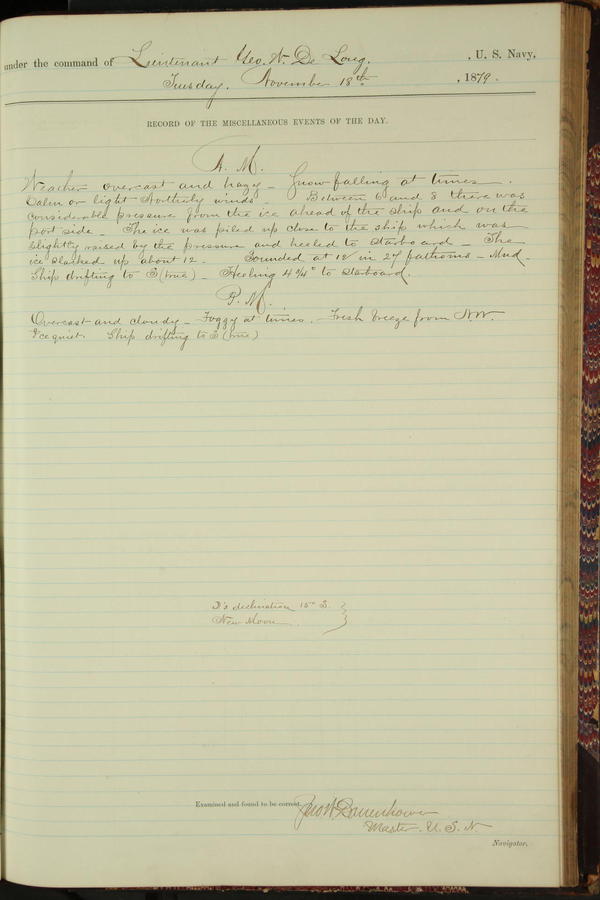 under the command of Lieutenant Geo. W. De Long. , U. S. Navy,
Tuesday. November 18th , 1879.
RECORD OF THE MISCELLANEOUS EVENTS OF THE DAY.
A. M.
Weather overcast and hazy – Snow falling at times.
Calm or light Northerly winds. Between 6 and 8 there was
considerable pressure from the ice ahead of the ship and on the
port side – The ice was piled up close to the ship which was
slightly raised by the pressure and heeled to starboard – The
ice slacked up about 12. Sounded at 12 in 27 fathoms – Mud.
Ship drifting to S (true) – Heeling 4 3/4° to starboard.
P. M.
Overcast and cloudy – Foggy at times. – Fresh breeze from N.W.
Ice quiet. Ship drifting to S (true)
declination 15° S. }
New Moon. }
Examined and found to be correct. Jno W Danenhower
Master. U. S. N
Navigator.